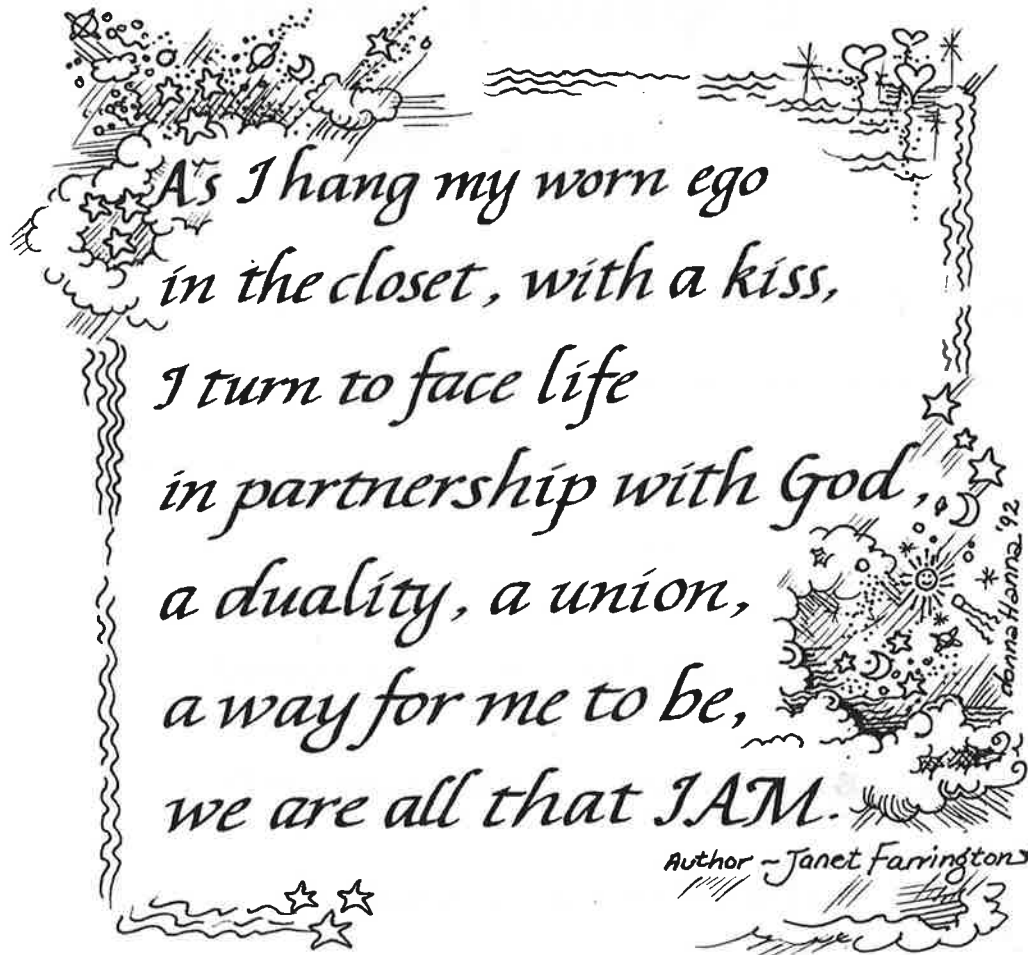 As I hang my worn ego
in the closet, with a kiss,
I turn to face life
in partnership with God,
a duality, a union,
a way for me to be,
we are all that I AM.
Author ~ Janet Farrington
donna Hanna '92